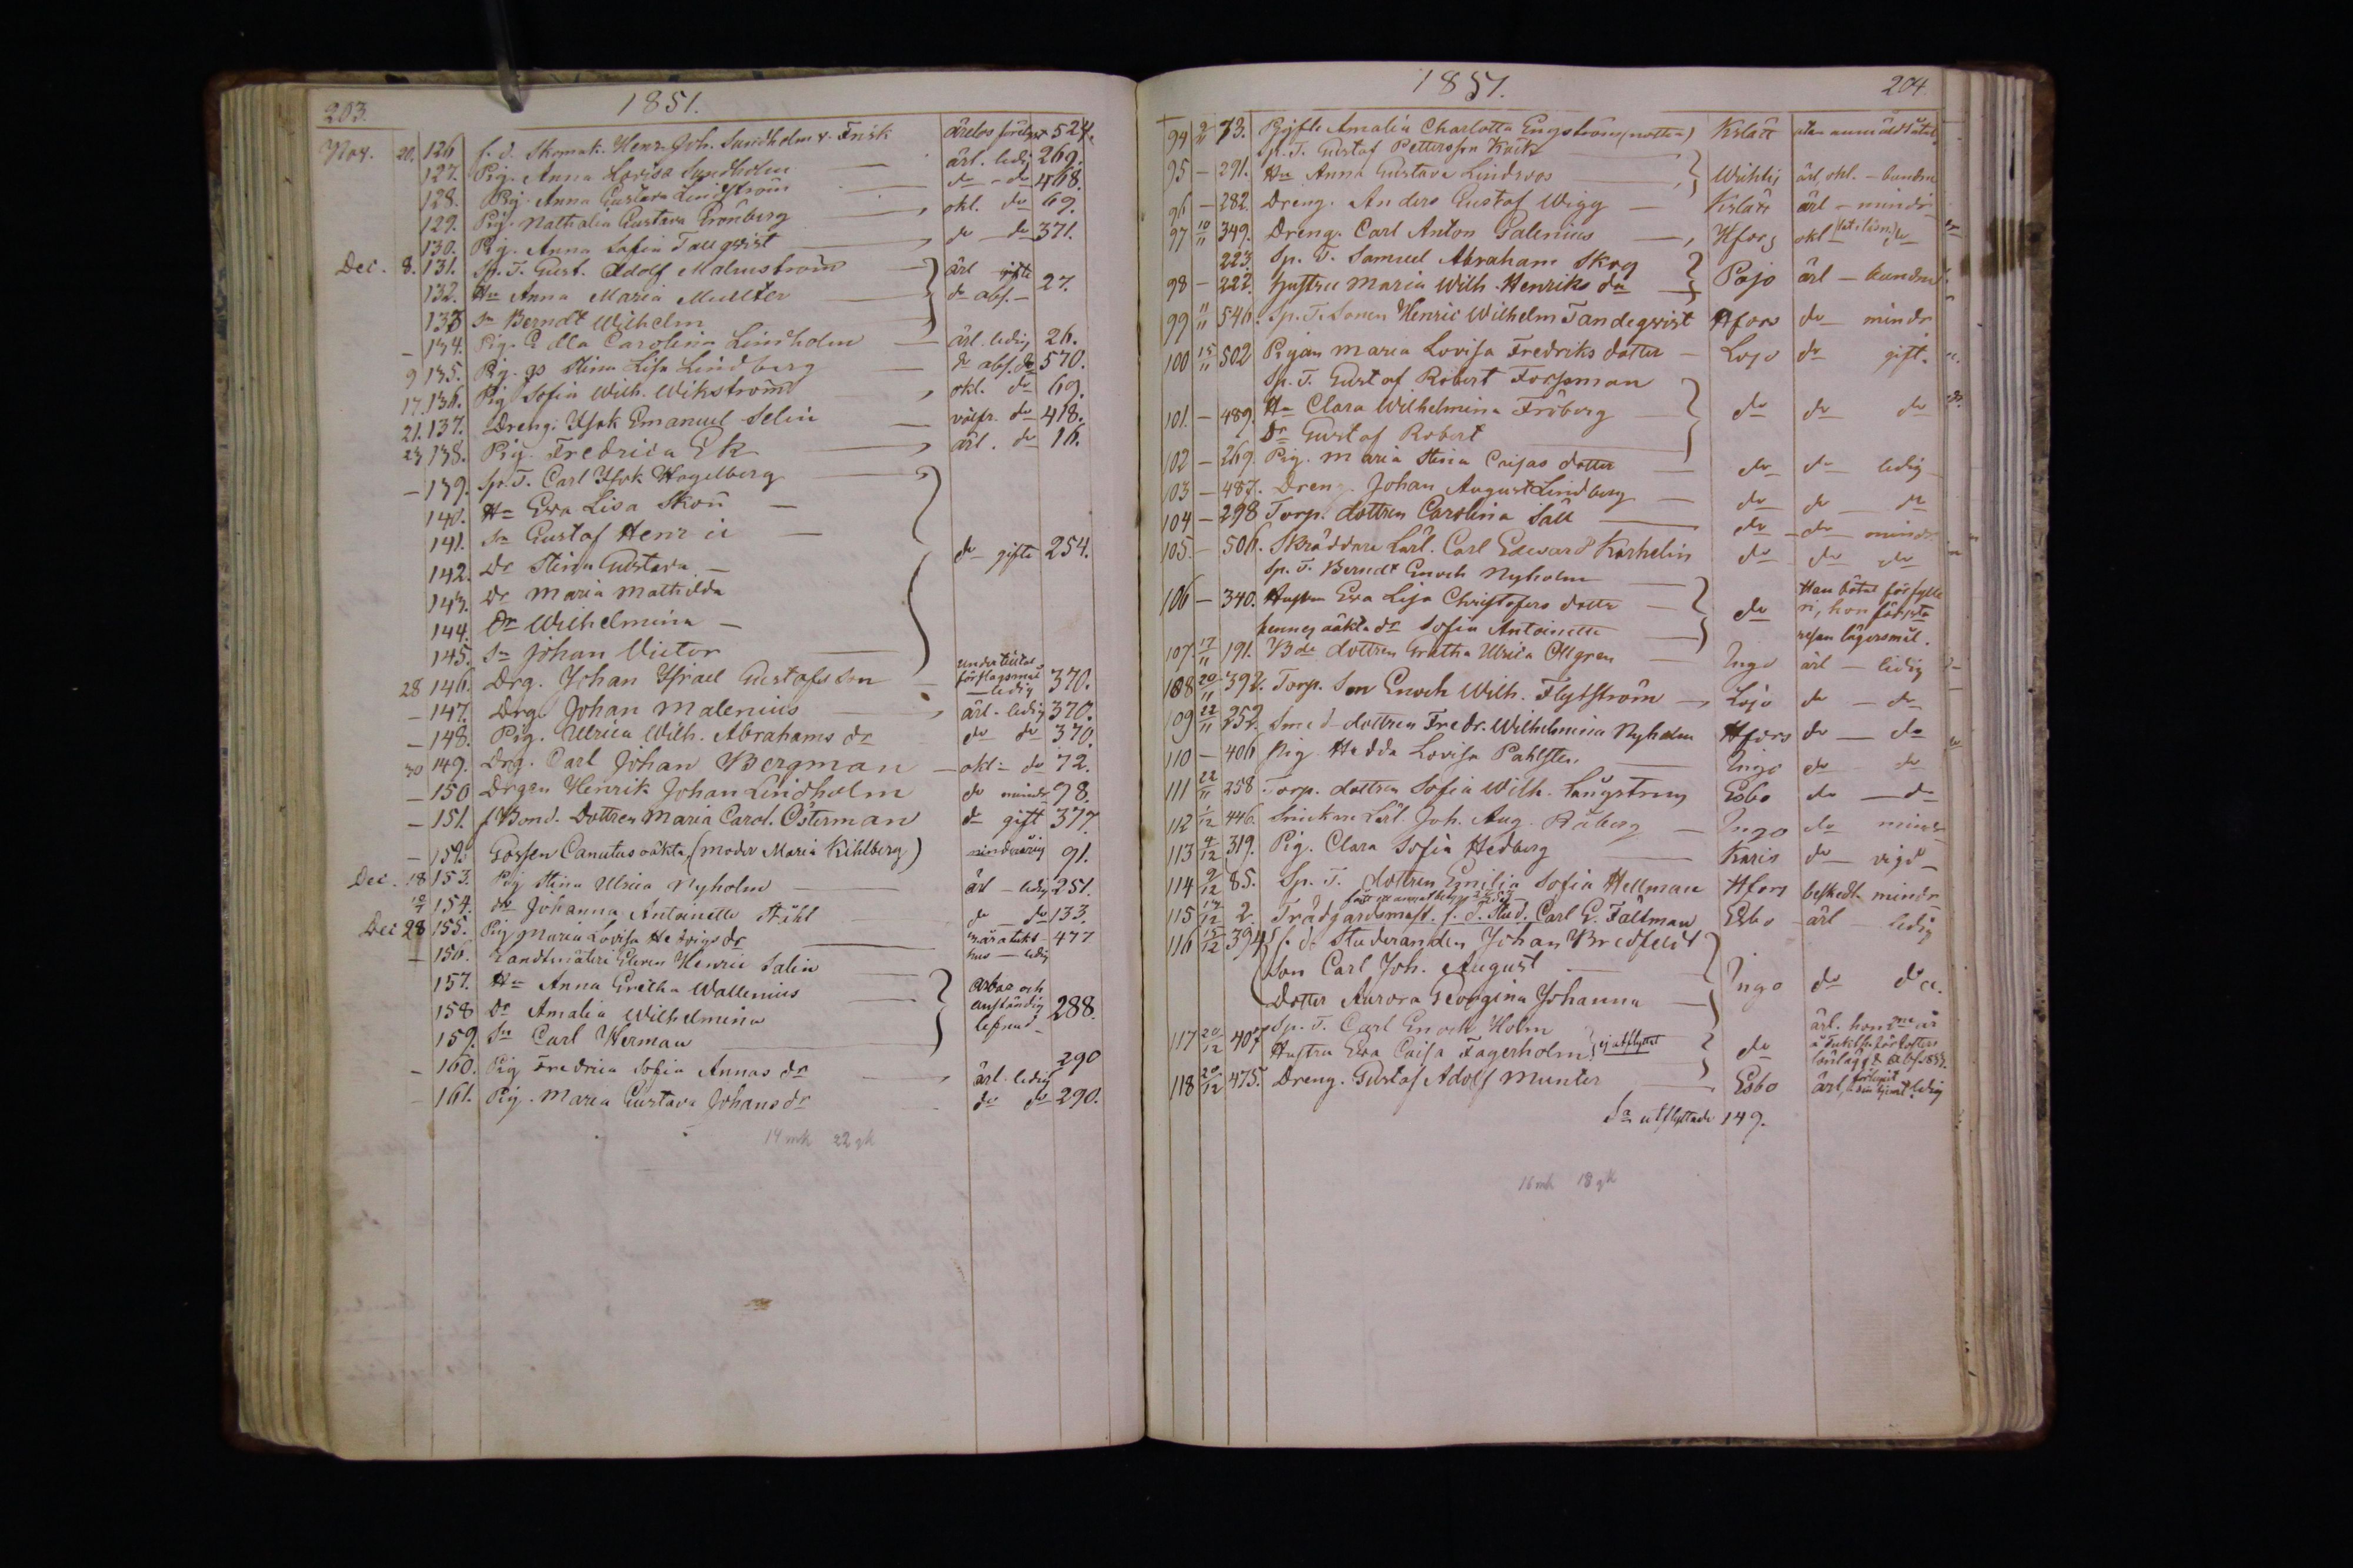 203. 1851.
Nov. 20. 126 f. d. Skomak. Henr. Joh. Sundholm v. Frisk ärelös förelagt 524.
127. Pig. Anna Lovisa Sundholm ärl. ledig 269.
128. Pig. Anna Gustava Lindström do - do 468.
129. Pig. Nathalia Gustava Grönberg okl. do 69.
130. Pig. Anna Sofia Tallqvist do - do 371.
Dec. 8. 131. Sp. T. Gust. Adolf Malmström ärl gifte
132. Hu Anna Maria Mueller do abs. - 27.
133 Sn Berndt Wilhelm
- 134. Pig. Edla Carolina Lindholm ärl. ledig 26.
9 135. Pig. gs Stina Lisa Lindberg do abs. do 570.
17. 136. Pig Sofia Wilh. Wikström okl. do 69.
21. 137. Dreng. Isak Emanuel Selin välfr. do 418.
23 138. Pig. Fredrica Ek ärl. do 16.
- 139. Sp. T. Carl Isak Hagelberg
140. Hu Eva Lisa Skön
141. Sn Gustaf Henric
142. Dr Stina Gustava - do gifte 254.
143. Dr Maria Mathilda
144. Dr Wilhelmina -
145. Sn Johan Victor
28 146. Drg. Johan Israel Gustafsson slagsmål - ledig 370.
- 147. Drg. Johan Malenius ärl. ledig 370.
- 148. Pig. Ulrica Wilh. Abrahams dr do do 370.
30 149. Drg. Carl Johan Bergman - okl - do 72.
- 150 Drgen Henrik Johan Lindholm do mindr 98.
- 151. f Bond. Dottren Maria Carol. Österman do gift 377.
- 152 Gossen Canutus oäkta, (moder Maria Kihlberg) minderårig 91.
Dec. 18 153. Pig Stina Ulrica Nyholm ärl - ledig 251.
154. do Johanna Antoinette Ståhl do do 133.
Dec 28 155. Pig Maria Lovisa Hedvigs dr 477
- 156. Landtmäteri Eleven Henric Salin
157. Hu Anna Gretha Wallenius och
158 Dr Amalia Wilhelmina anständig 288.
159. Sn Carl Herman lefnad -
- 160. Pig Fredrica Sofia Annas dr ärl. ledig 290
- 161. Pig. Maria Gustava Johans dr do do 290.
14 mk 22 qk
1851. 204
94 2/11 73. Amalia Charlotta Engström Kslätt utan anmäld
Sp. T. Gustaf Pettersson
95 - 291. Hu Anna Gustava Lindroos Wichtis ärl, okl. -
96 - 282. Dreng. Anders Gustaf Wigg Kslätt ärl - mindr
97 10/11 349. Dreng. Carl Anton Palenius Hfors okl
223. Sp. T. Samuel Abraham Skog
98 - 222. Hustru Maria Wilh. Henriks dr Pojo ärl -
99 11/11 546. Sp. T. Sonen Henric Wilhelm Tandeqvist Hfors do mindr
100 15/11 502 Pigan Maria Lovisa Fredriks dotter - Lojo do gift.
Sp. T. Gustaf Robert Forssman
101. - 489. Hu Clara Wilhelmina Fröberg do do do
Dr Gustaf Robert
102 - 269. Pig. Maria Stina Caisas dotter do do ledig
103 - 487. Dreng. Johan August Lindberg do do do
104 - 298 Torp. dottren Carolina Säll do do mindr
105. - 506. Skräddare Lärl. Carl Edward Karhelin do do do
Sp. T. Berndt Enoch Nyholm
106 - 340. Hustru Eva Lisa Christofers dotter do Han bötat för fylle
hennes oäkta dr Sofia Antoinette ri, hon första
resan lägersmål.
107. 17/11 191. Bde dottren Gretha Ulrica Öllgren Ingo ärl - ledig
108 20/11 392. Torp. Son Enoch Wilh. Flytström Lojo do - do
109 22/11 252. Smed dottren Fredr. Wilhelmina Nyholm Hfors do - do
110 - 406 Pig. Hedda Lovisa Pahlsten Ingo do do
111 22/11 258 Torp. dottren Sofia Wilh. Långström Esbo do - do
112 1/12 446. Snickare Lärl. Joh. Aug. Råberg Ingo do mindr
113 4/12 319. Pig. Clara Sofia Hedberg Karis do - vigd -
114 9/12 85. Sp. T. dottren Emilia Sofia Hellman Hfors beskedl. mindr
115 14/12 2. Trädgårdsmäst. f. d. Stud. Carl G. Fältman Esbo - ärl ledig
116 15/12 394 f. d. Studeranden Johan Bredfeldt
Son Carl Joh. August Ingo do
Dotter Aurora Georgina Johanna
117 20/12 407 Sp. T. Carl Enoch Holm ärl. hon
Hustru Eva Caisa Fagerholm ej utflyttat do
118 20/12 475. Dreng. Gustaf Adolf Munter Esbo ärl, ledig
Sa utflyttade 149.
16 mk 18 qk